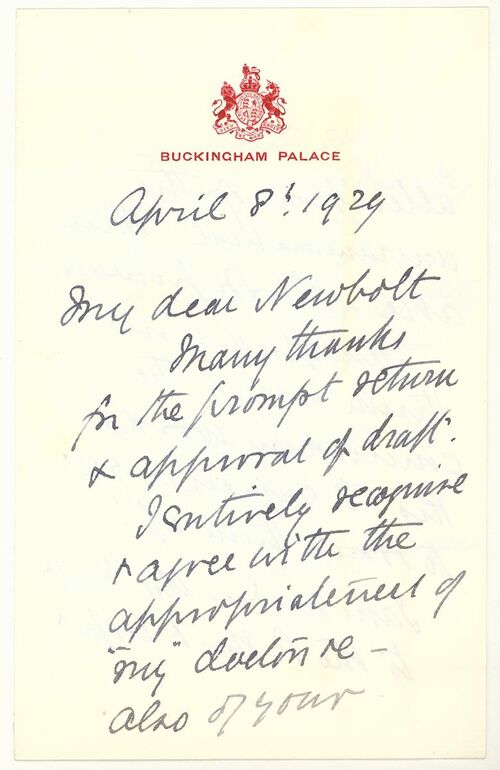 BUCKINGHAM PALACE
April 8th. 1929
My dear Newbolt
Many thanks
for the prompt return
& approval of draft.
I entirely recognise
& agree with the
appropriateness of
"my" doctor
also of your